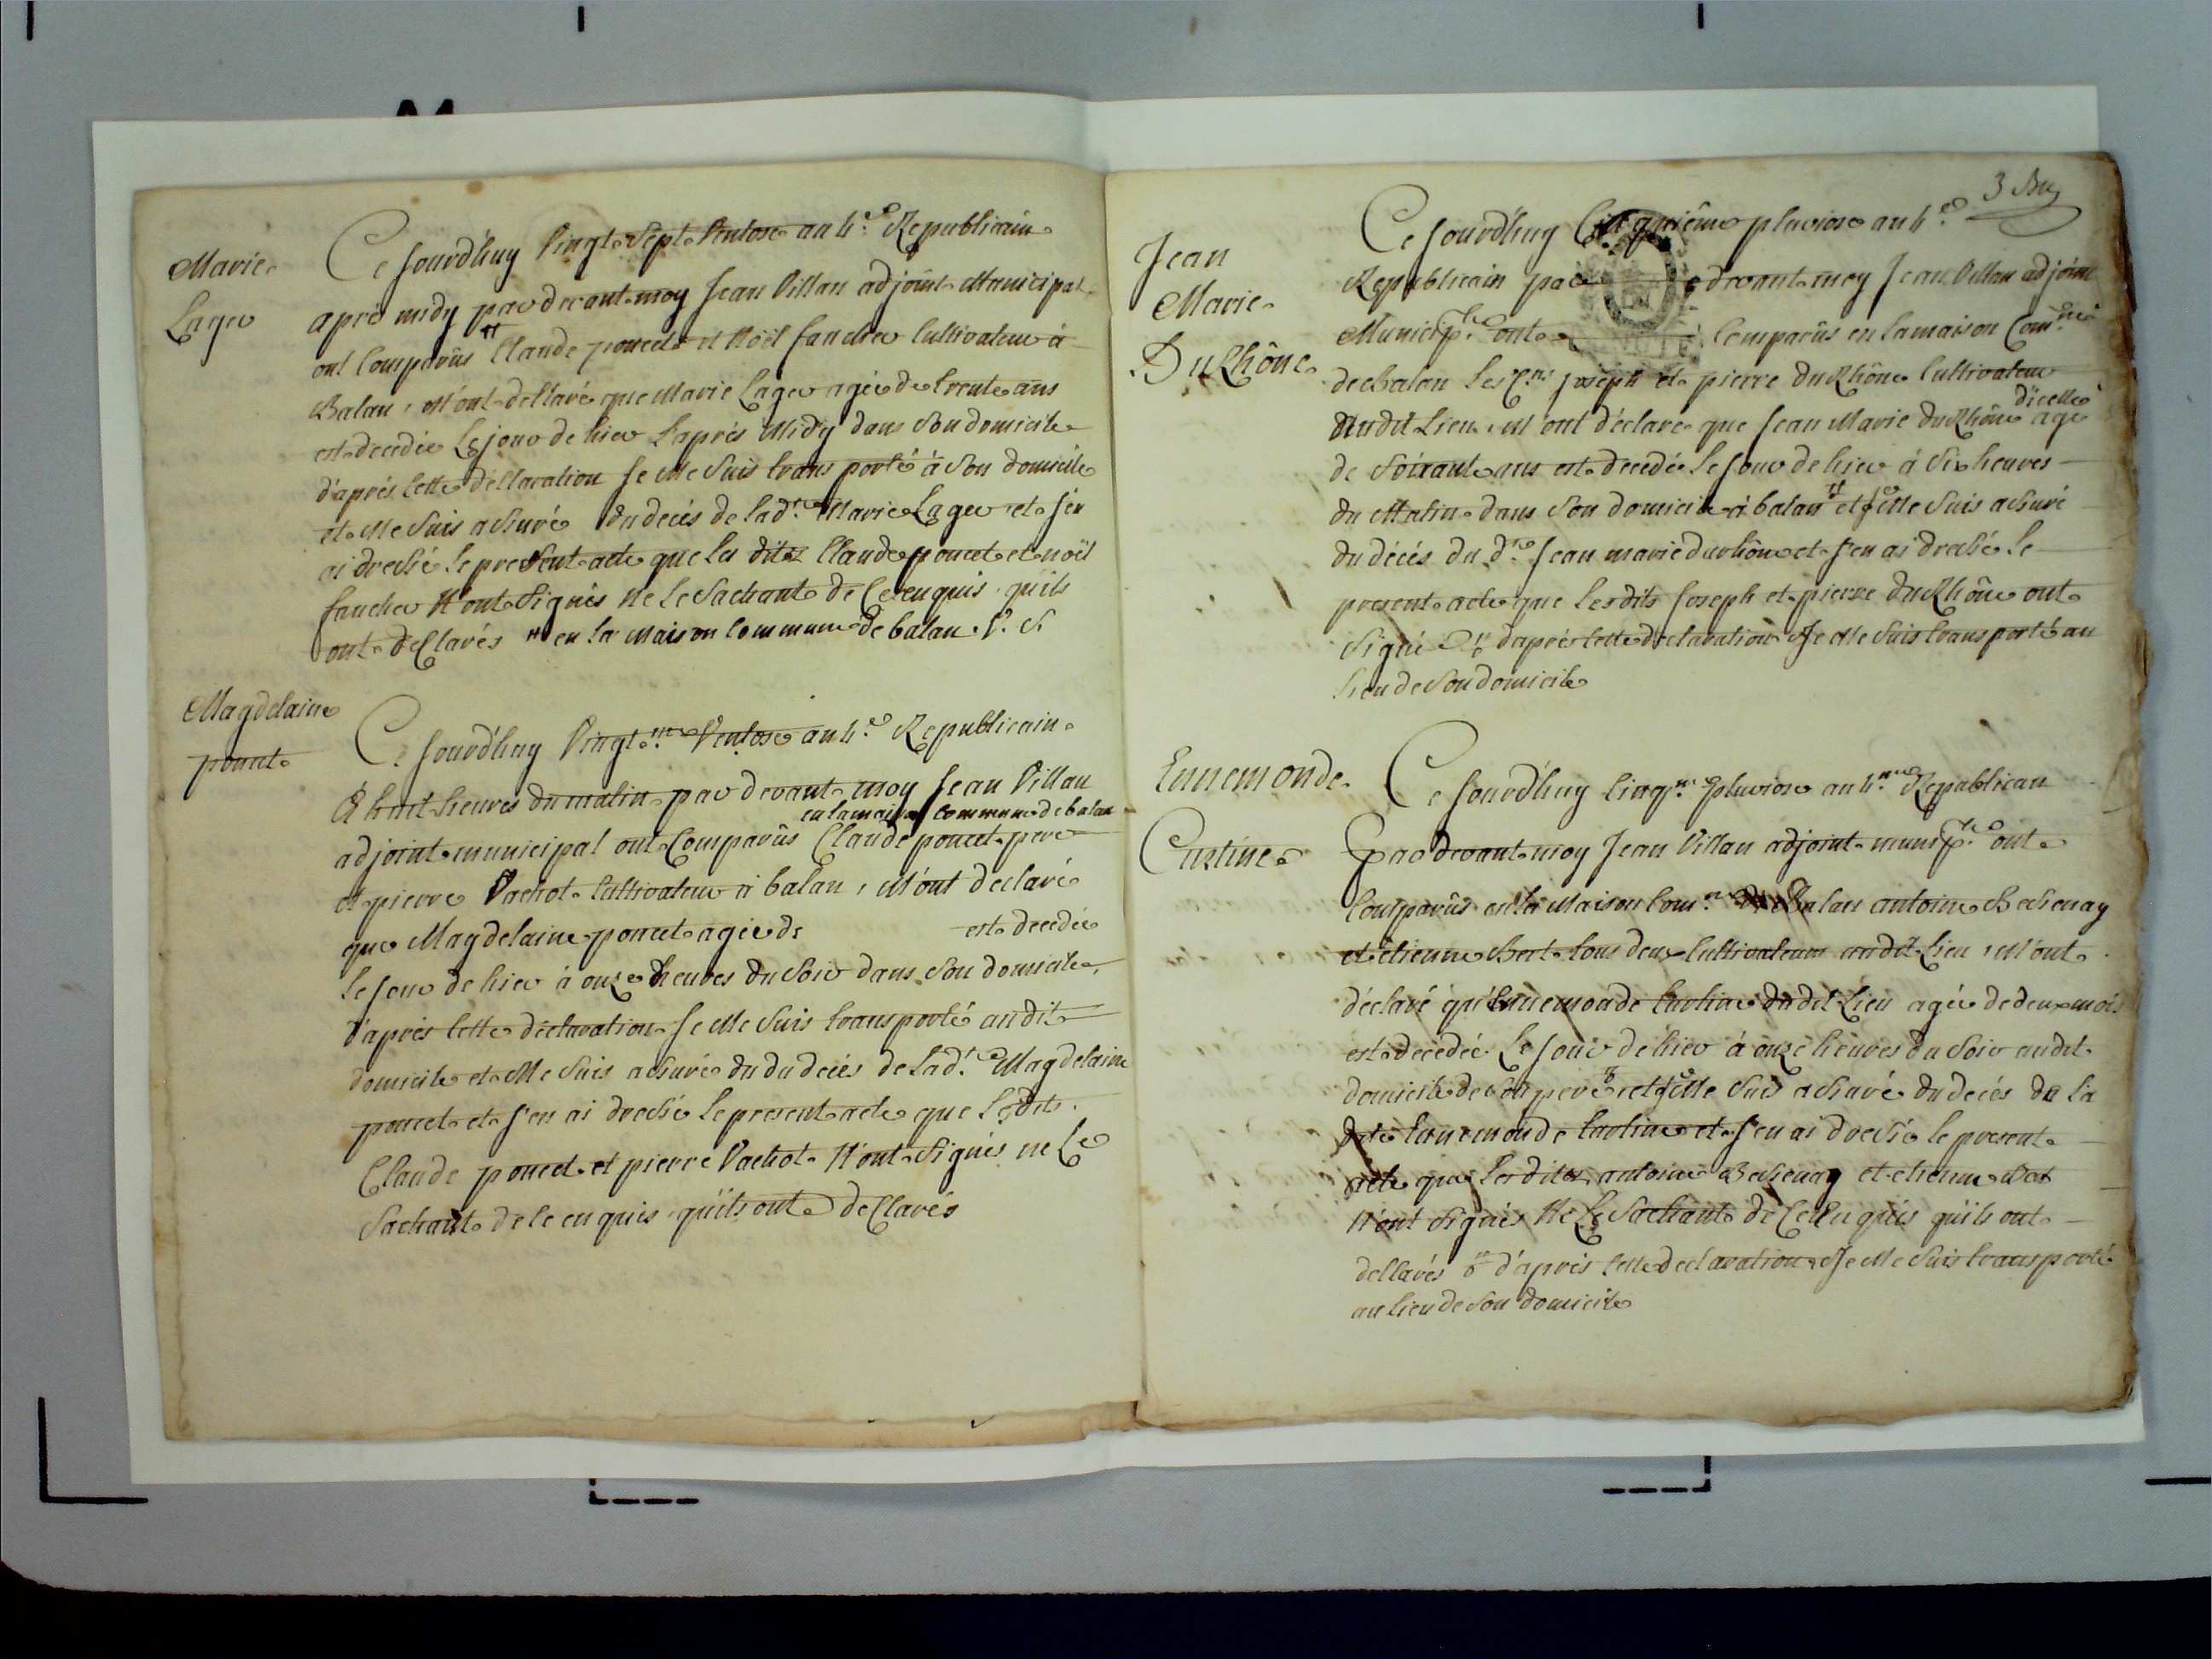 Marie
Lager
Ce Jourd'huy Vingt Sept Ventose an 4.e Republicain
aprè midy par devant moy Jean Villan adjoint Municipal
ont Comparûs # Claude poncet et Noël faucher Cultivateur à
Balan, M'ont dellaré que Marie Lager agée de trente ans
est decedée Le jour de hier L'aprés Midy dans Son domicile
d'aprés Cette dellaration Je Me Suis trans porté à Son domicile
et Me Suis assuré du decés de lad.te Marie Lager et J'en
ai dressé le present acte que les dits Claude poncet et noël
faucher N'ont Signés Ne Le Sachant de Ce enquis quils
ont deClarés # en La Maison Commune de balan. V. S.
Magdelaine
poncet
Ce Jourd'huy Vingt.me Ventose an 4.e Republicain
A huit heures du matin par devant moy Jean Villan
en la maison Commune de balan
adjoint municipal ont Comparûs Claude poncet pere
et pierre Vachot Cultivateur à balan, M'ont declaré
que Magdelaine poncet agée de est decedée
le Jour de hier à onze heures du Soir dans Son domicile,
d'aprés Cette déclaration Je Me Suis transporté au dit
domicile et Me Suis assuré du du decés de Lad.te Magdelaine
poncet et J'en ai dressé le present acte que Lesdits
Claude poncet et pierre Vachot N'ont Signés ne Le
Sachant de Ce enquis qu'ils ont deClarés
3
Jean
Marie
DuRhône
Ce Jourd'huy Cinquième pluviose an 4.e
Republicain par devant moy Jean Villan adjoint
Municip.le ont Comparûs en la maison Com.ne
de balan les C.ns joseph et pierre DuRhône Cultivateur
d'icelle
Audit Lieu, M'ont déclaré que Jean Marie DuRhône agé
de Soixante ans est decedé le Jour de hier à Six heures
du Matin dans Son domicile à balan # et Je Me Suis assuré
du décés du d.t Jean marie durhône et J'en ai dressé le
present acte que Lesdits Joseph et pierre DuRhône ont
Signé # d'aprés Cette declaration Je Me Suis transporté au
Lieu de Son domicile
Ennemonde
Custine
Ce Jourd'huy Cinq.me pluviose an 4.me Republicain
par devant moy Jean Villan adjoint munip.le ont
Comparûs en la Maison Com.ne de Balan antoine Bechenay
et etienne Bert tous deux Cultivateurs audit Lieu, M'ont
déclaré qu'Ennemonde Custine dudit Lieu agée de deux mois
est decedée Le Jour de hier à onze heures du Soir audit
domicile de Son pere # et Je Me Suis assuré du decés de la
dite Ennemonde Custine et J'en ai dressé le present
acte que les dites antoine Bechenay et etienne Bert
N'ont Signés Ne Le Sachant de Ce Enquis qu'ils ont
dellarés # d'aprés Cette declaration Je Me Suis transporté
au lieu de Son domicile